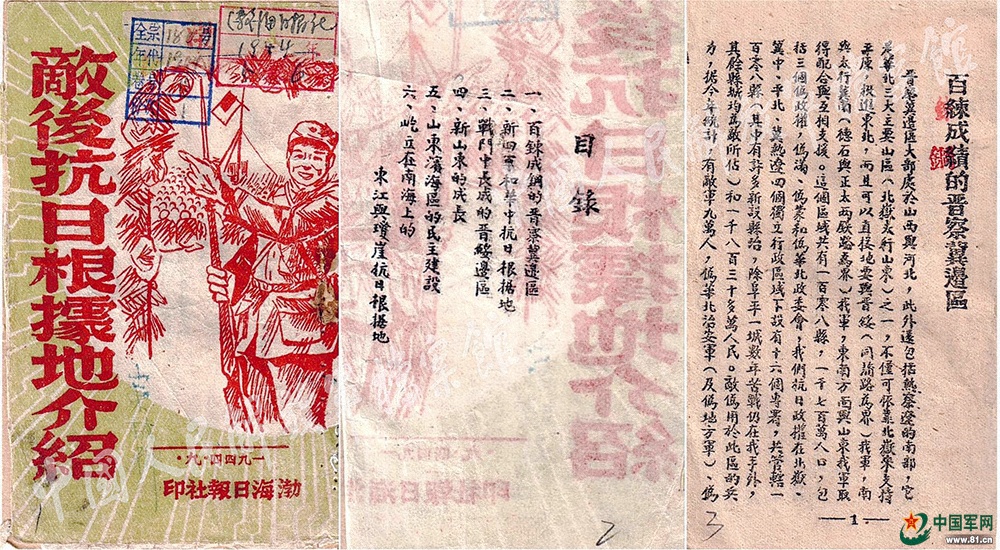 敵後抗日根據地介紹
一九四四·九·
渤海日報社印
目錄
一、百鍊成鋼的晉察冀邊區
二、新四軍和華中抗日根据地
三、戰鬥中長成的晉綏邊區
四、新山東的成長
五、山東濱海區的民主建設
六、屹立在南海上的
東江與瓊崖抗日根据地
2
百練成績的晋察冀邊區
晋察冀邊區大部处於山西與河北，此外還包括熱察遼的南部，它
是華北三大主要山區（北嶽太行山東）之一，不僅可依靠北嶽來支持
平原，挺進東北，而且可以直接地與晉綏（同蒲路為界）我軍，南
與太行冀南（德石與正太兩鉄路為界）我軍，東南方面與山東我軍取
得配合與互相支援。這個區域共有一百零八縣，一千七百萬人口，包
括三個偽政權，偽滿、偽蒙和偽華北政委會，我們抗日政權在北嶽、
冀中、平北、冀熱遼四個獨立行政區域下設有十六個專署，共管轄一
百零八縣（其中有許多新設縣治，除阜平一城数年苦戰仍在我手外，
其餘縣城均為敵所佔）和一千八百三十多萬人民。敵偽用於此區的兵
力，据今年統計，有敵軍九萬人，偽華北治安軍（及偽地方軍）、偽
—1—
3
中国军网
www.81.cn